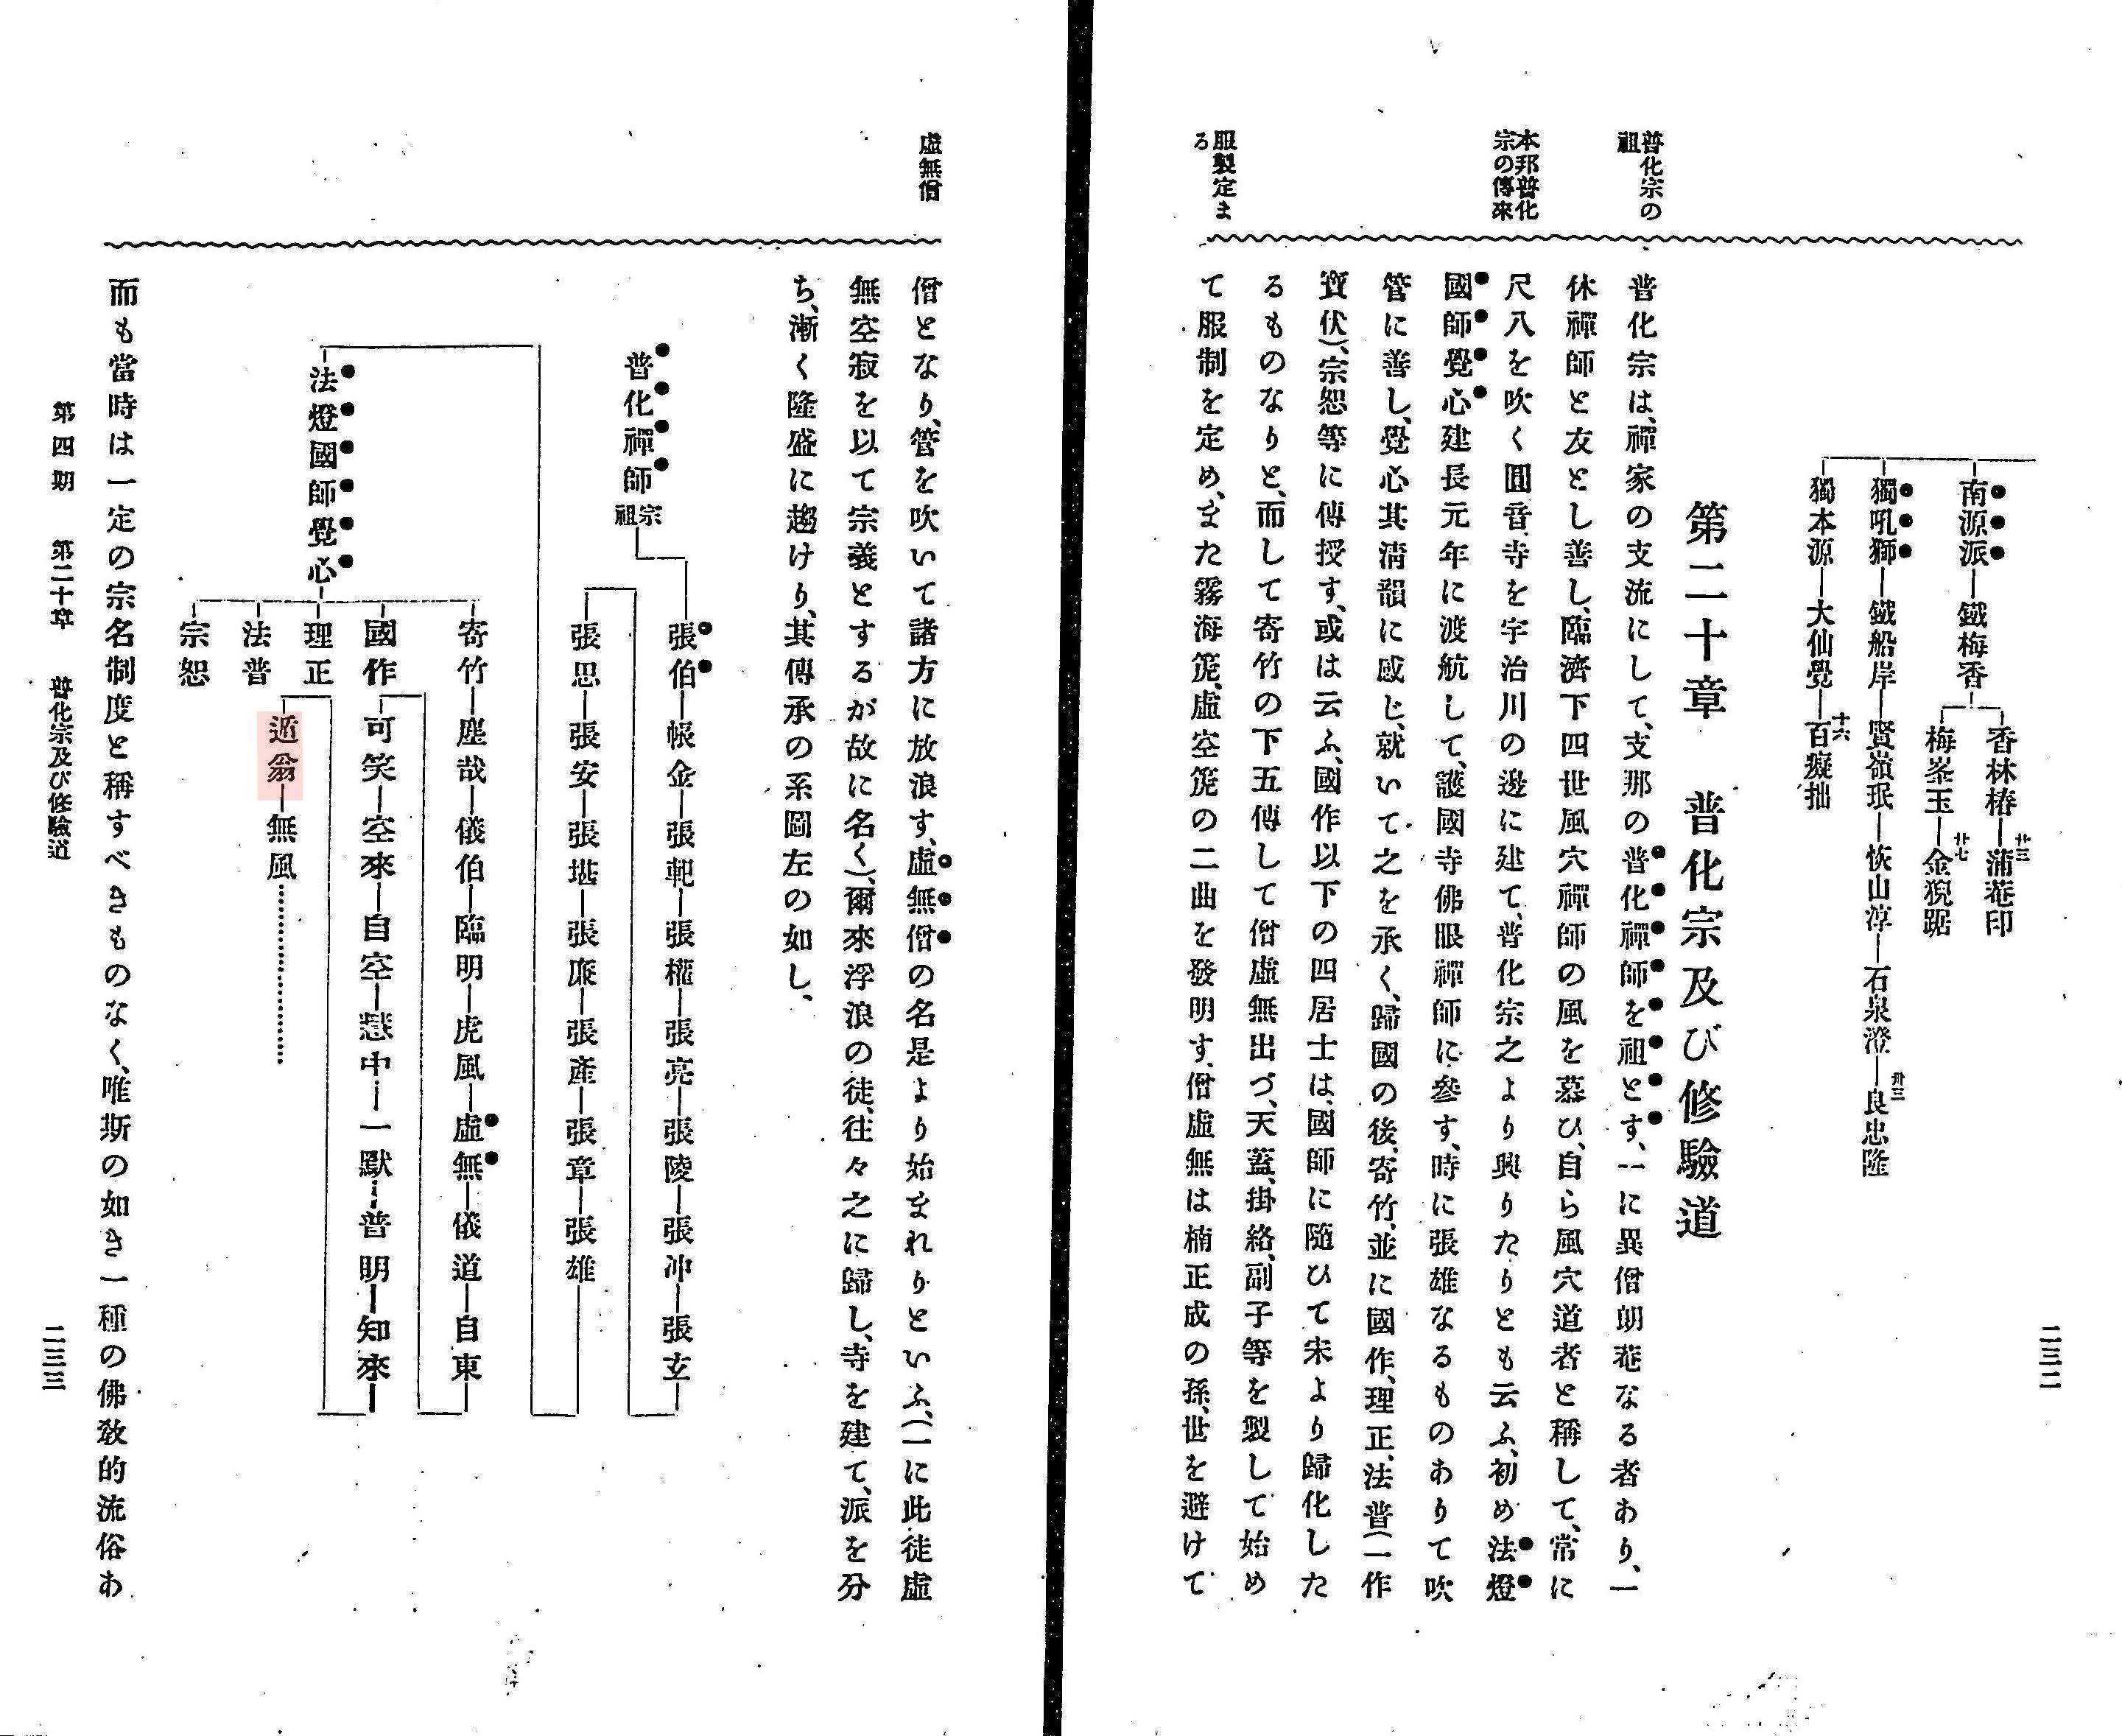 二三二
南源派―鐵梅香
香林椿―蒲菴印
廿三
梅峯玉―金猊踞
廿七
獨吼獅―鐵船岸―賢嶺珉―恢山淳―石泉澄―良忠隆
卅三
獨本源―大仙覺―百癡拙
十六
第二十章 普化宗及び修驗道
普化宗の
祖
普化宗は、禪家の支流にして、支那の普化禪師を祖とす、一に異僧朗菴なる者あり、一
休禪師と友とし善し、臨濟下四世風穴禪師の風を慕ひ、自ら風穴道者と稱して、常に
本邦普化
宗の傳來
尺八を吹く圓音寺を宇治川の邊に建て、普化宗之より興りたりとも云ふ、初め法燈
國師覺心建長元年に渡航して、護國寺佛眼禪師に參す、時に張雄なるものありて吹
管に善し、覺心其淸韻に感じ、就いて之を承く、歸國の後、寄竹、並に國作、理正、法普(一作
寶伏)、宗恕等に傳授す、或は云ふ、國作以下の四居士は、國師に隨ひて宋より歸化した
るものなりと、而して寄竹の下五傳して僧虛無出づ、天蓋、掛絡、副子等を製して始め
服製定ま
る
て服制を定め、また霧海篪、虛空篪の二曲を發明す、僧虛無は楠正成の孫、世を避けて
虛無僧
僧となり、管を吹いて諸方に放浪す、虛無僧の名是より始まれりといふ、(一に此徒虛
無空寂を以て宗義とするが故に名く)、爾來浮浪の徒、往々之に歸し、寺を建て、派を分
ち、漸く隆盛に趨けり、其傳承の系圖左の如し、
普化禪師 宗祖
張伯―帳金―張範―張權―張亮―張陵―張冲―張玄
張思―張安―張堪―張廉―張產―張章―張雄
法燈國師覺心
寄竹―塵哉―儀伯―臨明―虎風―虛無―儀道―自東
國作
可笑―空來―自空―慧中―一默―普明―知來
理正
遁翁―無風
法普
宗恕
而も當時は一定の宗名制度と稱すべきものなく、唯斯の如き一種の佛敎的流俗あ
第四期 第二十章 普化宗及び修驗道
二三三